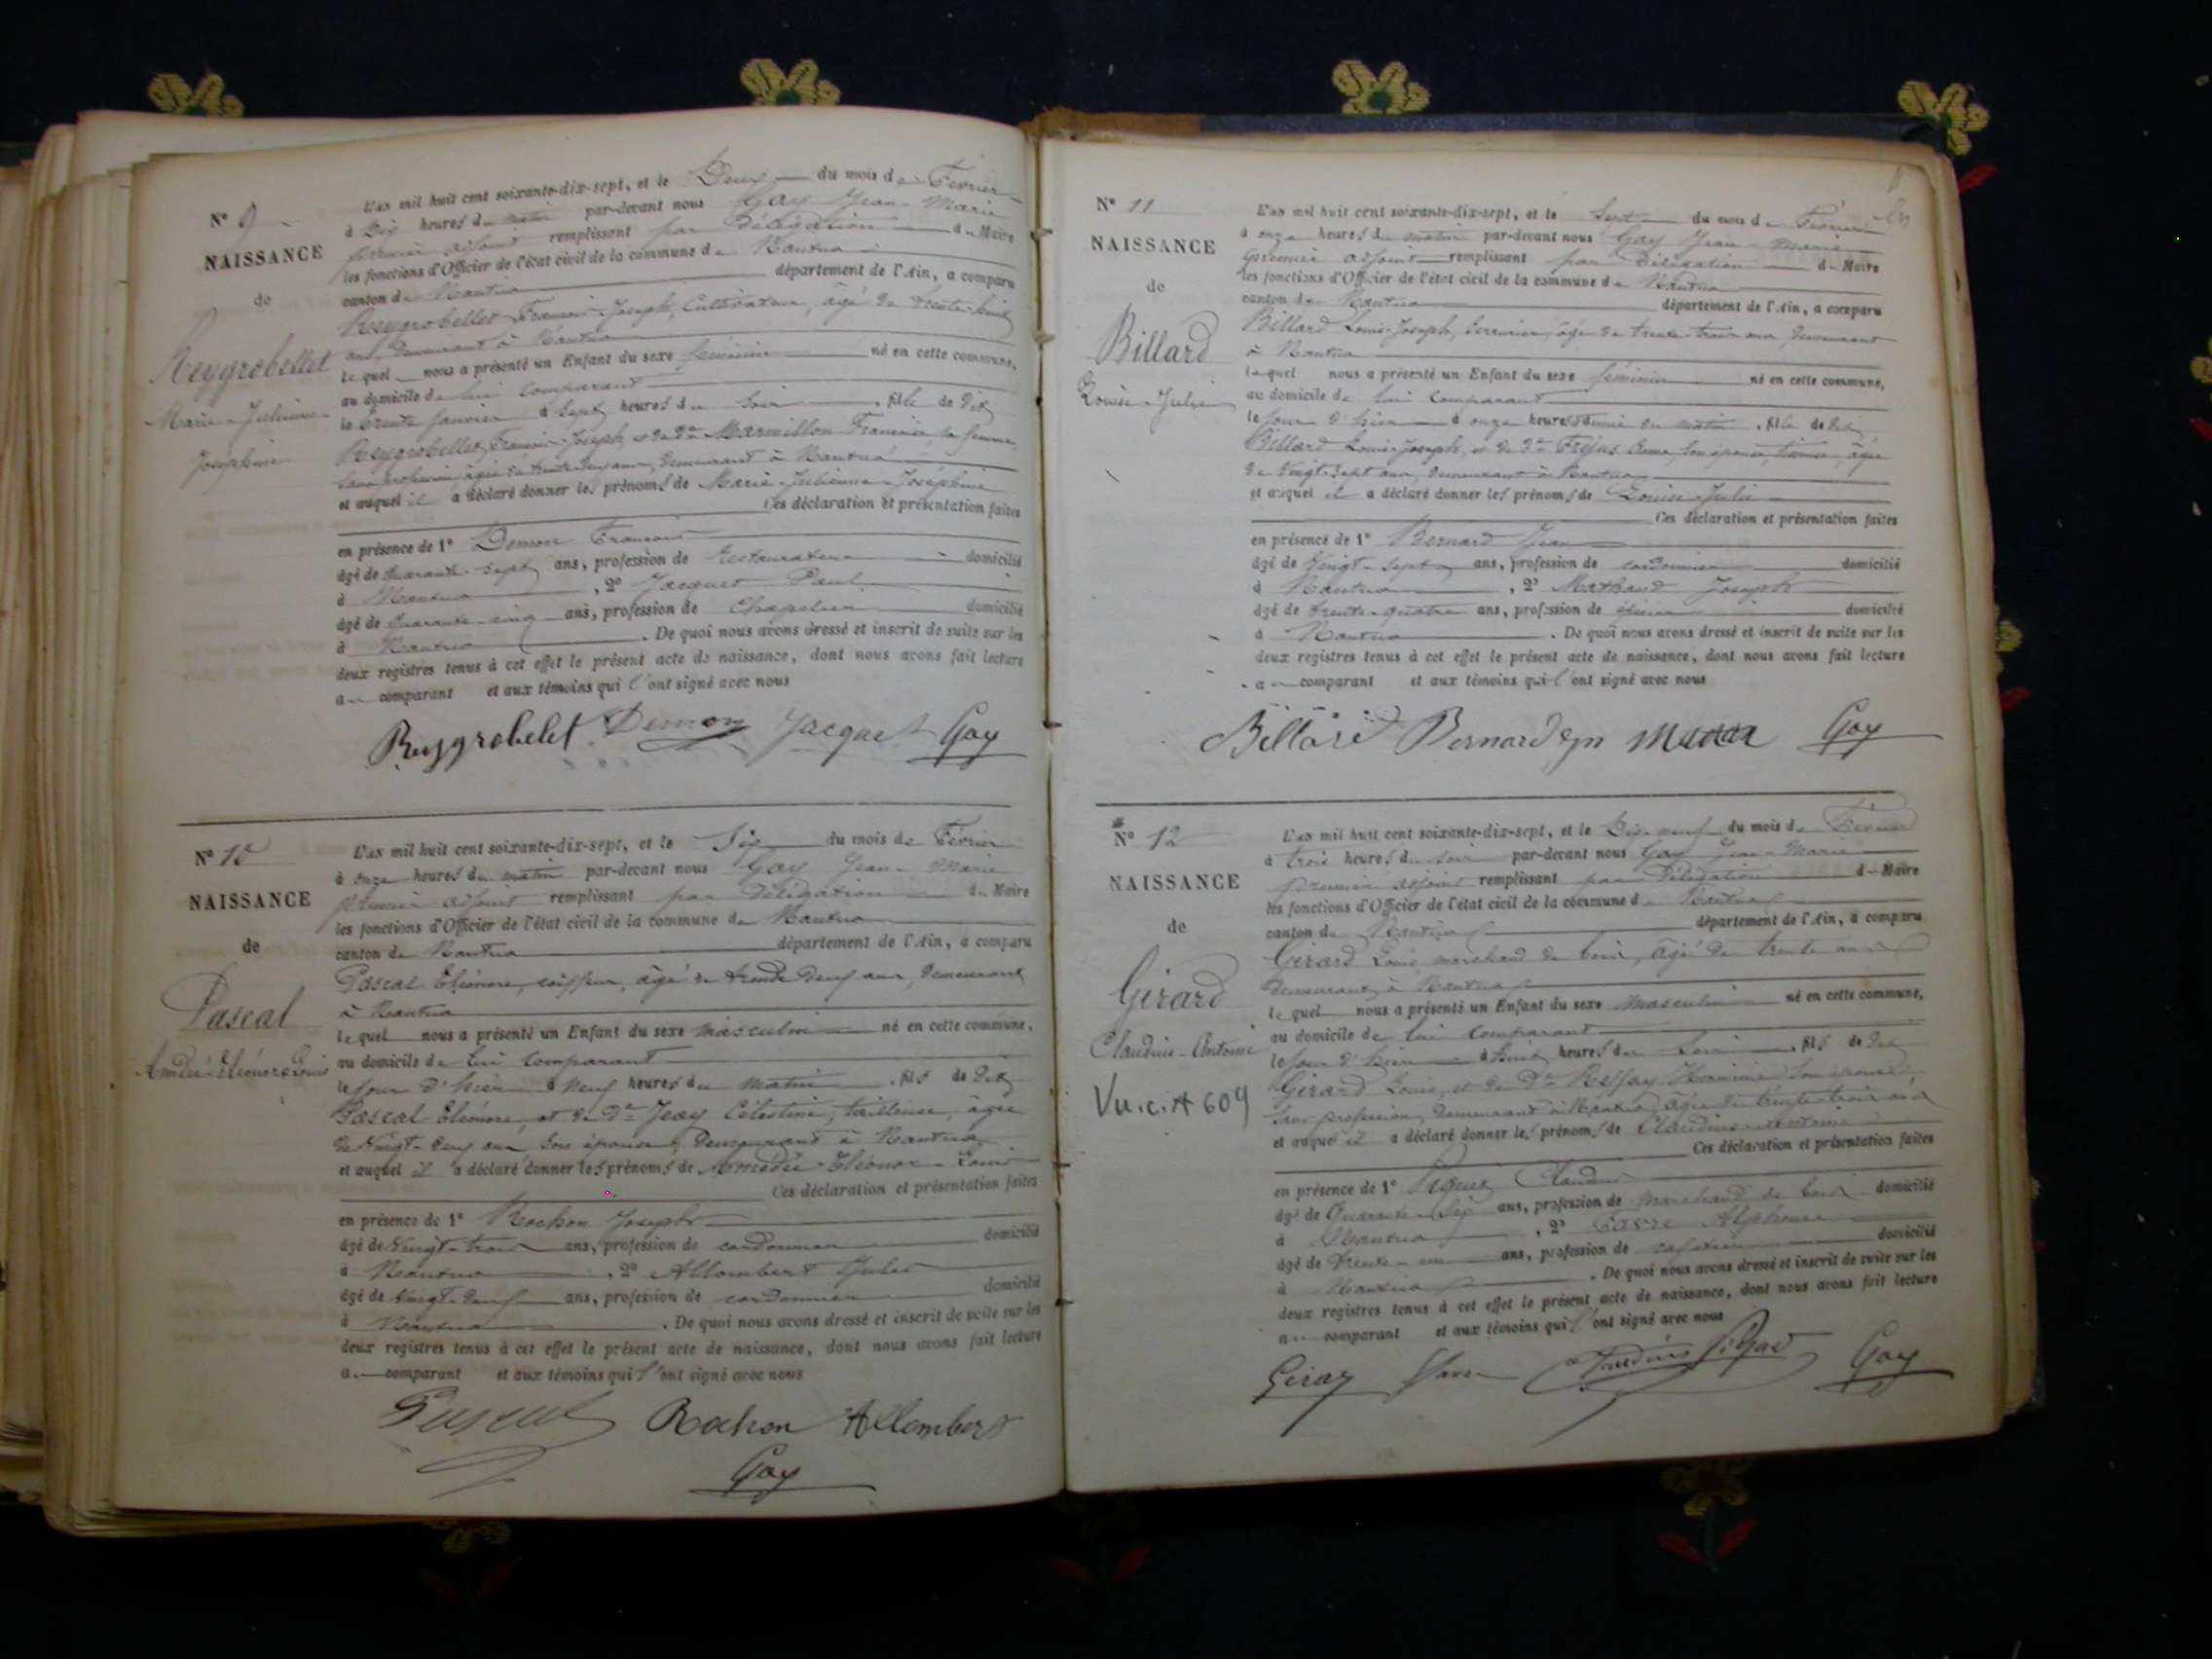 N° 9
NAISSANCE
de
Reygrobellet
Marie-Julienne
Joséphine
L'an mil huit cent soixante-dix-sept, et le Deux du mois de Février
à Dix heures du matin par-devant nous Gay Jean-Marie
premier adjoint remplissant par délégation du Maire
les fonctions d'Officier de l'état civil de la commune de Nantua
canton de Nantua département de l'Ain, a comparu
Reygrobellet François-Joseph, Cultivateur, âgé de trente-huit
ans, demeurant à Nantua
lequel nous a présenté un Enfant du sexe féminin né en cette commune,
au domicile de lui comparant
le trente janvier à sept heures du soir, fille de dit
Reygrobellet François-Joseph, et de De Marmillon Françoise, sa femme,
sans profession âgée de trente-deux ans, demeurant à Nantua
et auquel il a déclaré donner les prénoms de Marie-Julienne-Joséphine
Ces déclaration et présentation faites
en présence de 1° Demon François
âgé de quarante-sept ans, profession de restaurateur domicilié
à Nantua, 2° Jacquet Paul
âgé de quarante-cinq ans, profession de Chapelier domicilié
à Nantua. De quoi nous avons dressé et inscrit de suite sur les
deux registres tenus à cet effet le présent acte de naissance, dont nous avons fait lecture
au comparant et aux témoins qui l'ont signé avec nous
Reygrobelet Demon Jacquet Gay
N° 10
NAISSANCE
de
Pascal
Amédée-Eléonore-Louis
L'an mil huit cent soixante-dix-sept, et le Six du mois de Février
à onze heures du matin par-devant nous Gay Jean-Marie
premier adjoint remplissant par délégation du Maire
les fonctions d'Officier de l'état civil de la commune de Nantua
canton de Nantua département de l'Ain, a comparu
Pascal Eléonore, coiffeur, âgé de trente deux ans, demeurant
à Nantua
lequel nous a présenté un Enfant du sexe masculin né en cette commune,
au domicile de lui comparant
le jour d'hier à neuf heures du matin, fils de dit
Pascal Eléonore, et de De Jeay Célestine, tailleuse, âgée
de vingt-deux ans son épouse, demeurant à Nantua
et auquel il a déclaré donner les prénoms de Amédée-Eléonor-Louis
Ces déclaration et présentation faites
en présence de 1° Rochon Joseph
âgé de vingt-trois ans, profession de cordonnier domicilié
à Nantua, 2° Allombert Jules
âgé de vingt-neuf ans, profession de cordonnier domicilié
à Nantua. De quoi nous avons dressé et inscrit de suite sur les
deux registres tenus à cet effet le présent acte de naissance, dont nous avons fait lecture
au comparant et aux témoins qui l'ont signé avec nous
Pascal Rochon Allombert
Gay
N° 11
NAISSANCE
de
Billard
Louise-Julie
L'an mil huit cent soixante-dix-sept, et le Sept du mois de Février
à onze heures du matin par-devant nous Gay Jean-Marie
premier adjoint remplissant par délégation du Maire
les fonctions d'Officier de l'état civil de la commune de Nantua
canton de Nantua département de l'Ain, a comparu
Billard Louis-Joseph, serrurier, âgé de trente-trois ans, demeurant
à Nantua
lequel nous a présenté un Enfant du sexe féminin né en cette commune,
au domicile de lui comparant
le jour d'hier à onze heures demie du matin, fille de dit
Billard Louis-Joseph, et de De Fréjus son épouse, âgée
de vingt-sept ans, demeurant à Nantua
et auquel il a déclaré donner les prénoms de Louise-Julie
Ces déclaration et présentation faites
en présence de 1° Bernard Jean
âgé de vingt-sept ans, profession de cordonnier domicilié
à Nantua, 2° Mathaud Joseph
âgé de trente-quatre ans, profession de domicilié
à Nantua. De quoi nous avons dressé et inscrit de suite sur les
deux registres tenus à cet effet le présent acte de naissance, dont nous avons fait lecture
au comparant et aux témoins qui l'ont signé avec nous
Billard Bernard Gay
N° 12
NAISSANCE
de
Girard
Claudius-Antoine
Vu.c.A 609
L'an mil huit cent soixante-dix-sept, et le Dix-neuf du mois de Février
à trois heures du soir par-devant nous Gay Jean-Marie
premier adjoint remplissant par délégation du Maire
les fonctions d'Officier de l'état civil de la commune de Nantua
canton de Nantua département de l'Ain, a comparu
Girard Louis, marchand de bois, âgé de trente ans
demeurant à Nantua
lequel nous a présenté un Enfant du sexe masculin né en cette commune,
au domicile de lui comparant
le jour d'hier à huit heures du soir, fils de dit
Girard Louis, et de De Reffay son épouse,
sans profession, demeurant à Nantua, âgée de trente-trois ans
et auquel il a déclaré donner les prénoms de Claudius-Antoine
Ces déclaration et présentation faites
en présence de 1° Claudius
âgé de Quarante-six ans, profession de marchand de bois domicilié
à Nantua, 2° Favre Alphonse
âgé de trente-un ans, profession de cafetier domicilié
à Nantua. De quoi nous avons dressé et inscrit de suite sur les
deux registres tenus à cet effet le présent acte de naissance, dont nous avons fait lecture
au comparant et aux témoins qui l'ont signé avec nous
Girard Favre Claudius Gay